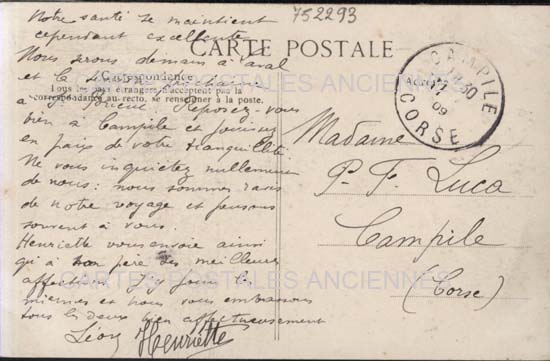 752293
CARTE POSTALE
Correspondance
Tous les pays étrangers n'acceptent pas la
correspondance au recto, se renseigner à la poste.
Notre santé se maintient
cependant excellente.
Nous serons demain à Laval
et la
à St Brieuc Reposez-vous
bien à Campile et jouissez
en paix de votre tranquillité
Ne vous inquiétez nullement
de nous: nous sommes ravis
de notre voyage et pensons
souvent à vous.
Henriette vous envoie ainsi
qu'à mon père ses meilleures
affections. J'y joins les
miennes et nous vous embrassons
tous les deux bien affectueusement
Léon Henriette
CAMPILE
09
CORSE
Madame
P. F. Luca
Campile
(Corse)
CARTES POSTALES ANCIENNES
CARTES POSTALES ANCIENNES